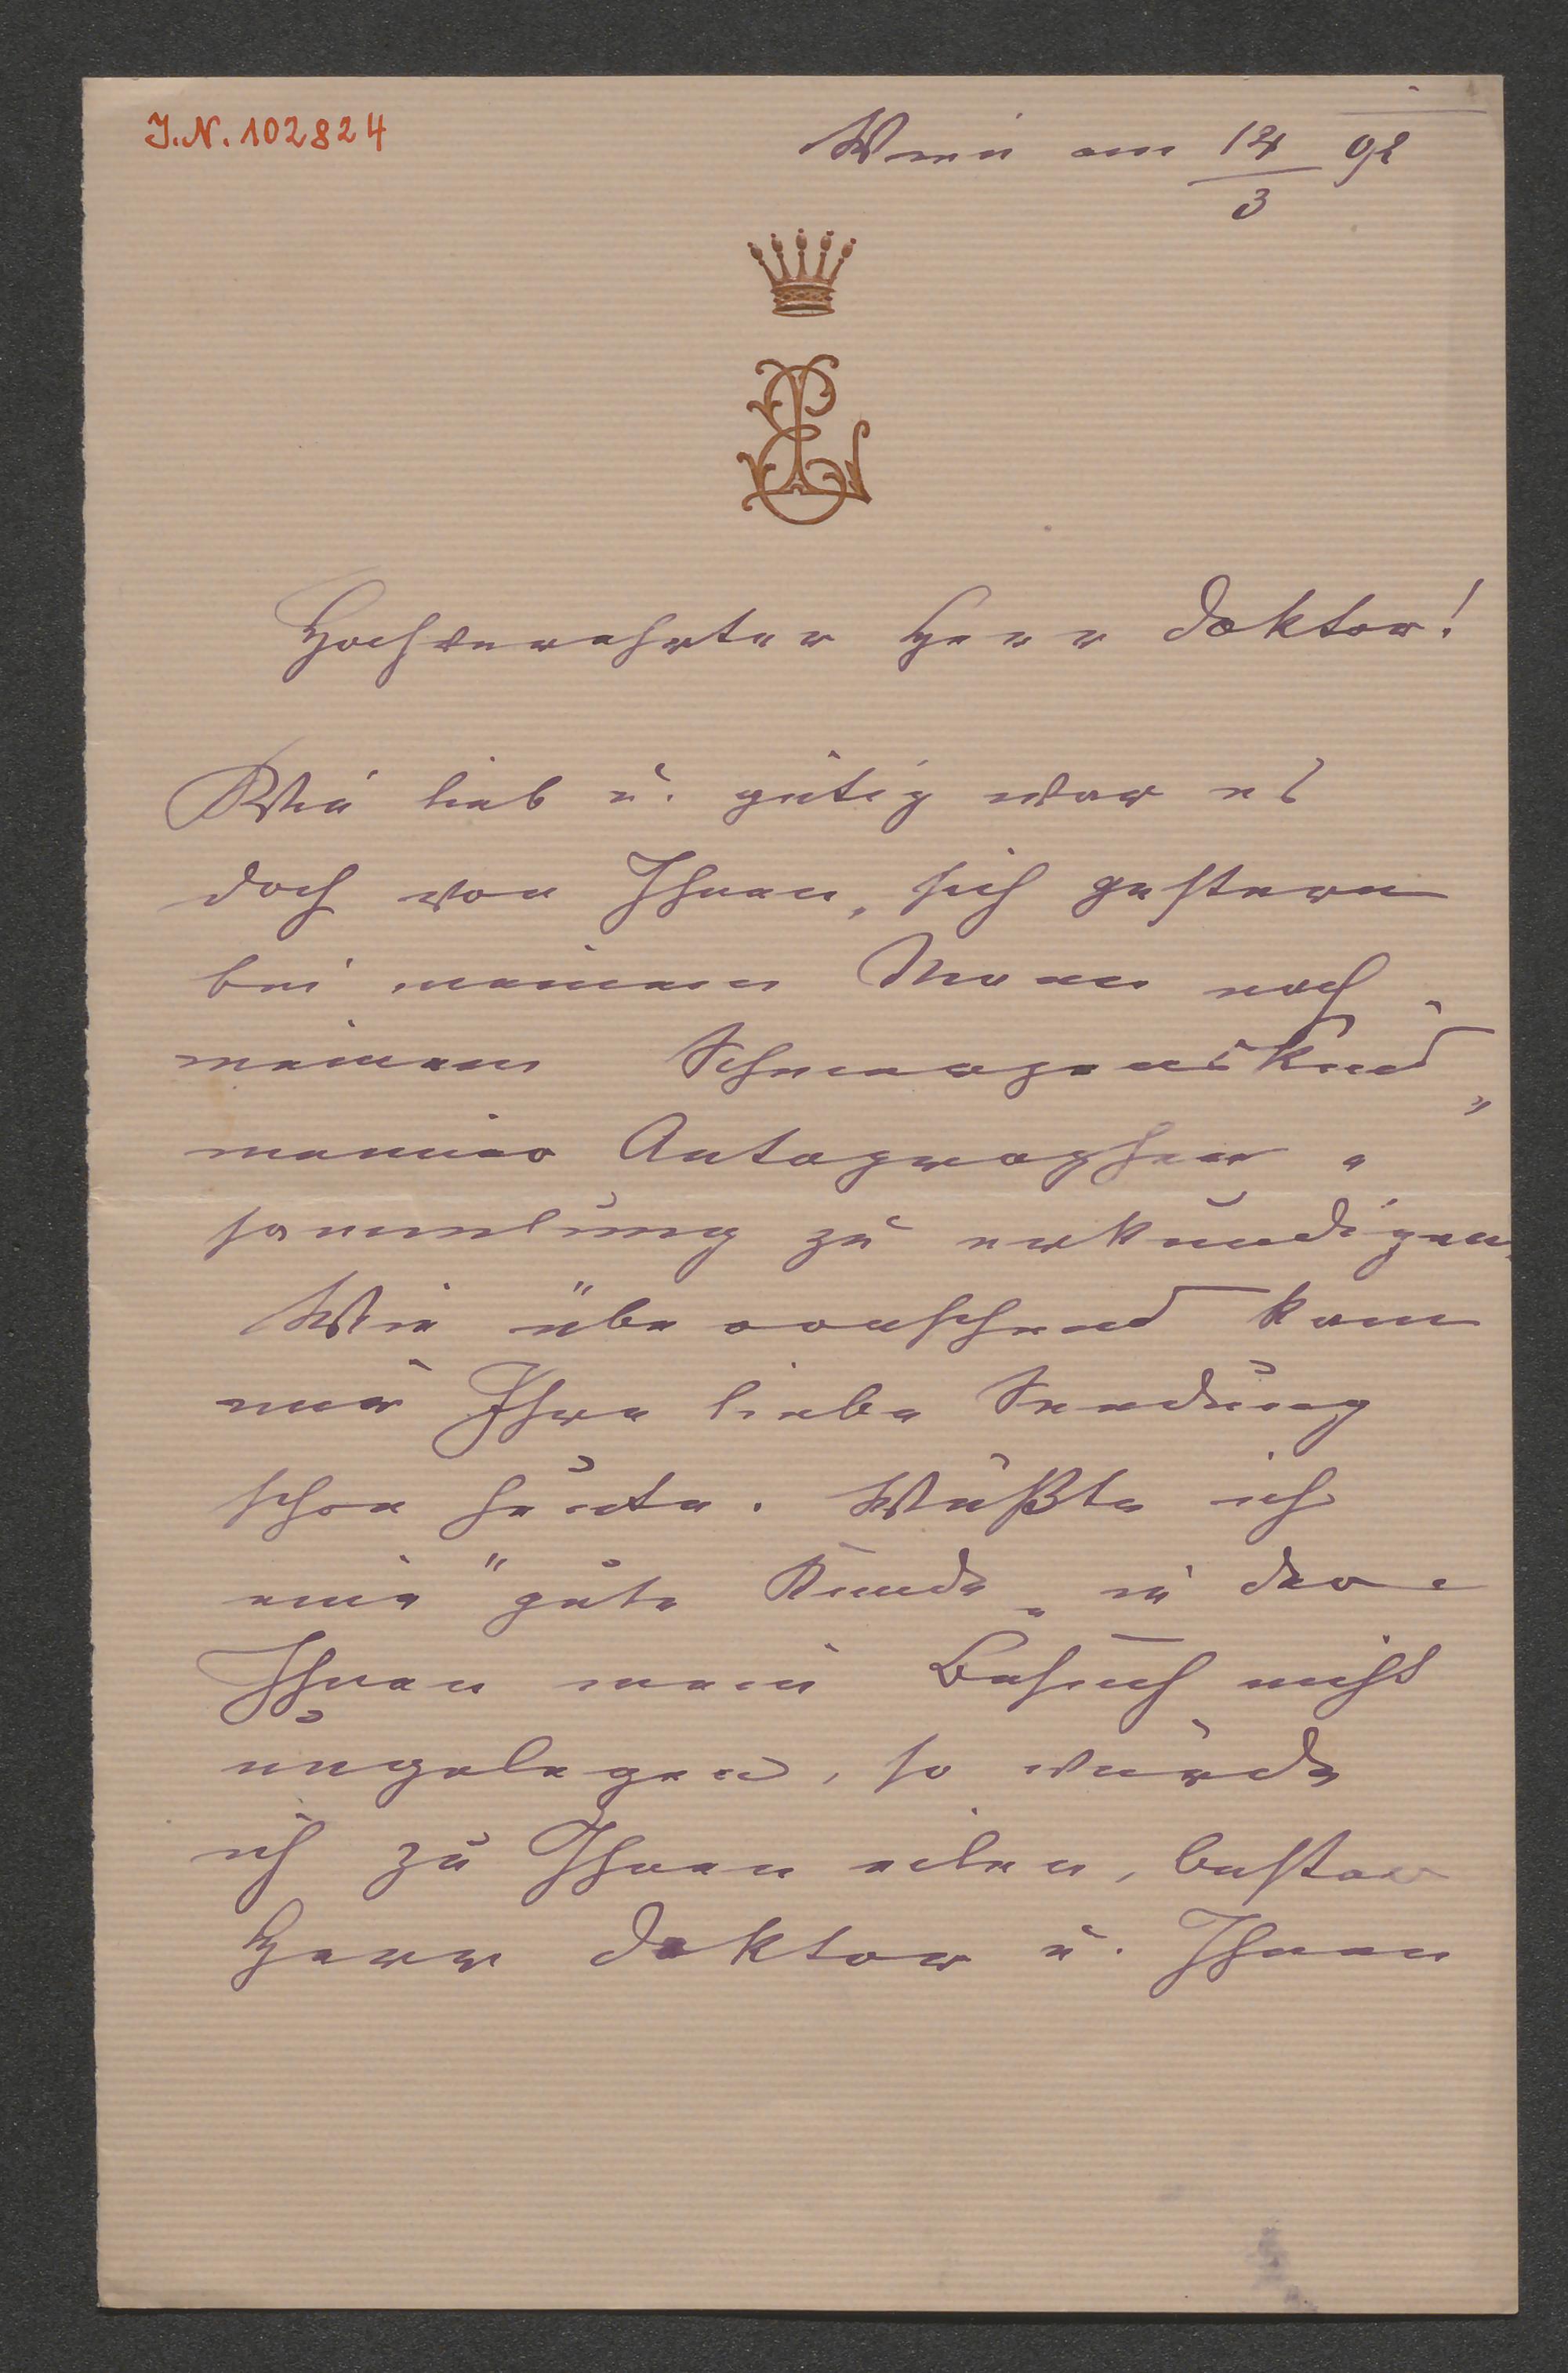 I.N. 102824
Wien am 14/3 92
Hochverehrter Herr Doktor!
Wie lieb u. gütig war es
doch von Ihnen, sich gestern
bei meinem Mann nach
meinem Schmerzenskind „
meiner Autographen „
sammlung zu erkundigen.
Wie überraschend kam
mir Ihre liebe Sendung
schon heute. Wüßte ich
eine "gute Stunde„ in der
Ihnen mein Besuch nicht
ungelegen, so würde
ich zu Ihnen eilen, bester
Herr Doktor u. Ihnen